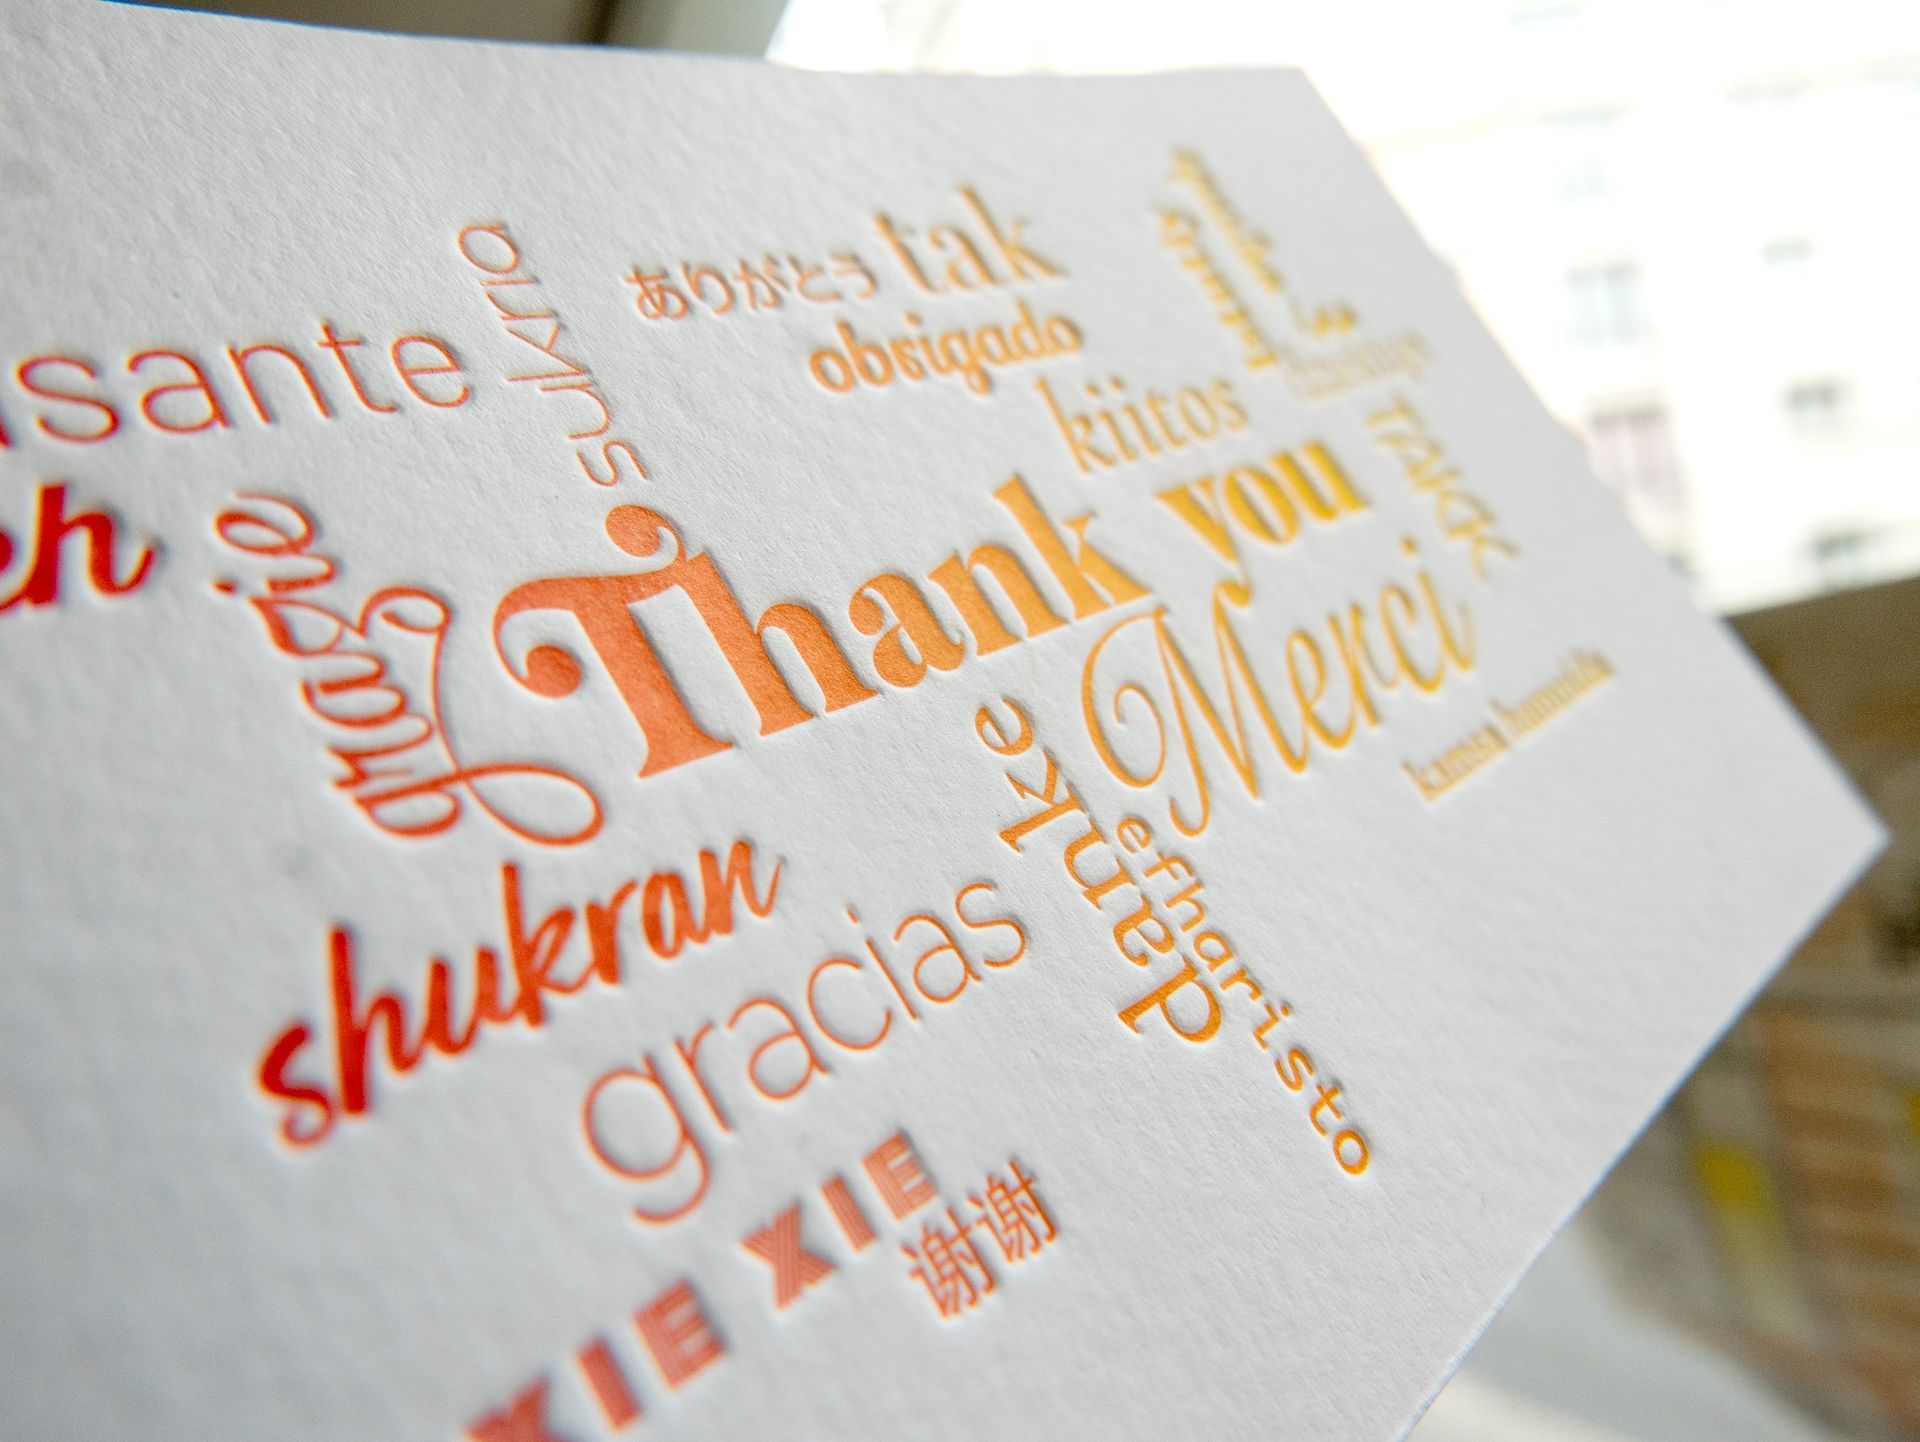 sante
sukriya
ありがとう
tak
obrigado
kiitos
TAKK
eh
grazie
Thank you
Merci
kamsa hamnida
danke
efharisto
shukran
gracias
XIE XIE
谢谢